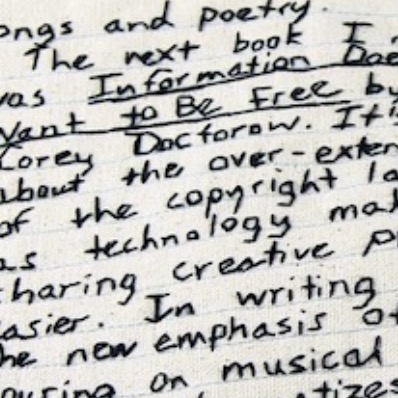 ongs and poetry.
The next book I
was Information Doe
Want to Be Free by
Corey Doctorow. It's
about the over-exten
of the copyright la
as technology mak
sharing creative p
easier. In writing
he new emphasis of
ouring on musical